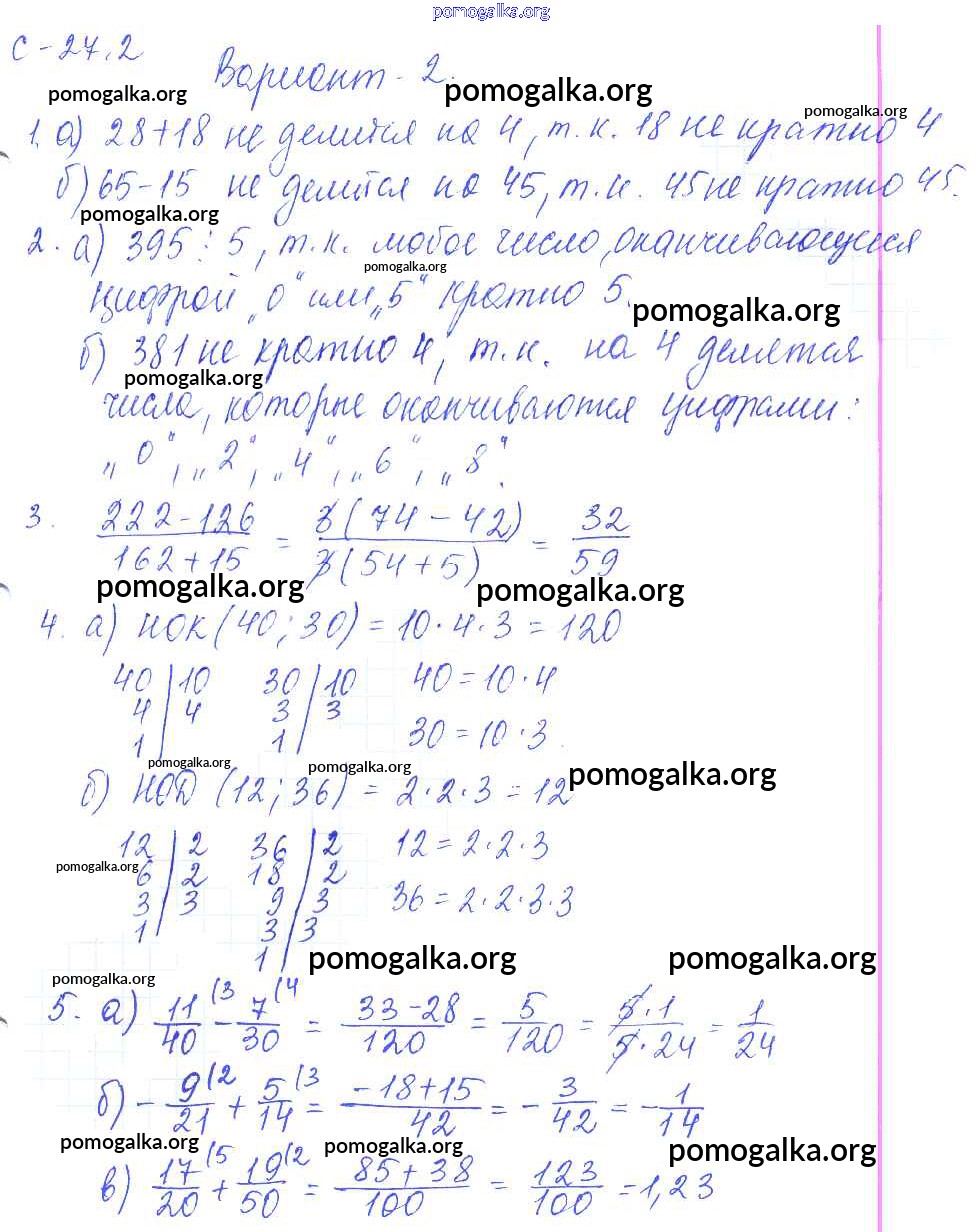 pomogalka.org
С-27.2
Вариант-2.
pomogalka.org pomogalka.org pomogalka.org
1. а) 28+18 не делится на 4, т.к. 18 не кратно 4
б) 65-15 не делится на 45, т.к. 45 не кратно 45.
pomogalka.org
2. а) 395 : 5, т.к. любое число, оканчивающееся
pomogalka.org
цифрой „0“ или „5“ кратно 5.
pomogalka.org
б) 381 не кратно 4, т.к. на 4 делятся
pomogalka.org
числа, которые оканчиваются цифрами:
„0“, „2“, „4“, „6“, „8“.
3. (222-126)/(162+15) = 3(74-42)/3(54+5) = 32/59
pomogalka.org pomogalka.org
4. а) НОК (40; 30) = 10·4·3 = 120
40 | 10 30 | 10 40 = 10·4
4 | 4 3 | 3
1 | 1 | 30 = 10·3
pomogalka.org pomogalka.org pomogalka.org
б) НОД (12; 36) = 2·2·3 = 12
12 | 2 36 | 2 12 = 2·2·3
pomogalka.org
6 | 2 18 | 2
3 | 3 9 | 3 36 = 2·2·3·3
1 | 3 | 3
1 |
pomogalka.org pomogalka.org
pomogalka.org
5. а) 11/40 (3 - 7/30 (4 = (33-28)/120 = 5/120 = 5·1/5·24 = 1/24
б) - 9/21 (2 + 5/14 (3 = (-18+15)/42 = - 3/42 = - 1/14
pomogalka.org pomogalka.org pomogalka.org
в) 17/20 (5 + 19/50 (2 = (85+38)/100 = 123/100 = 1,23